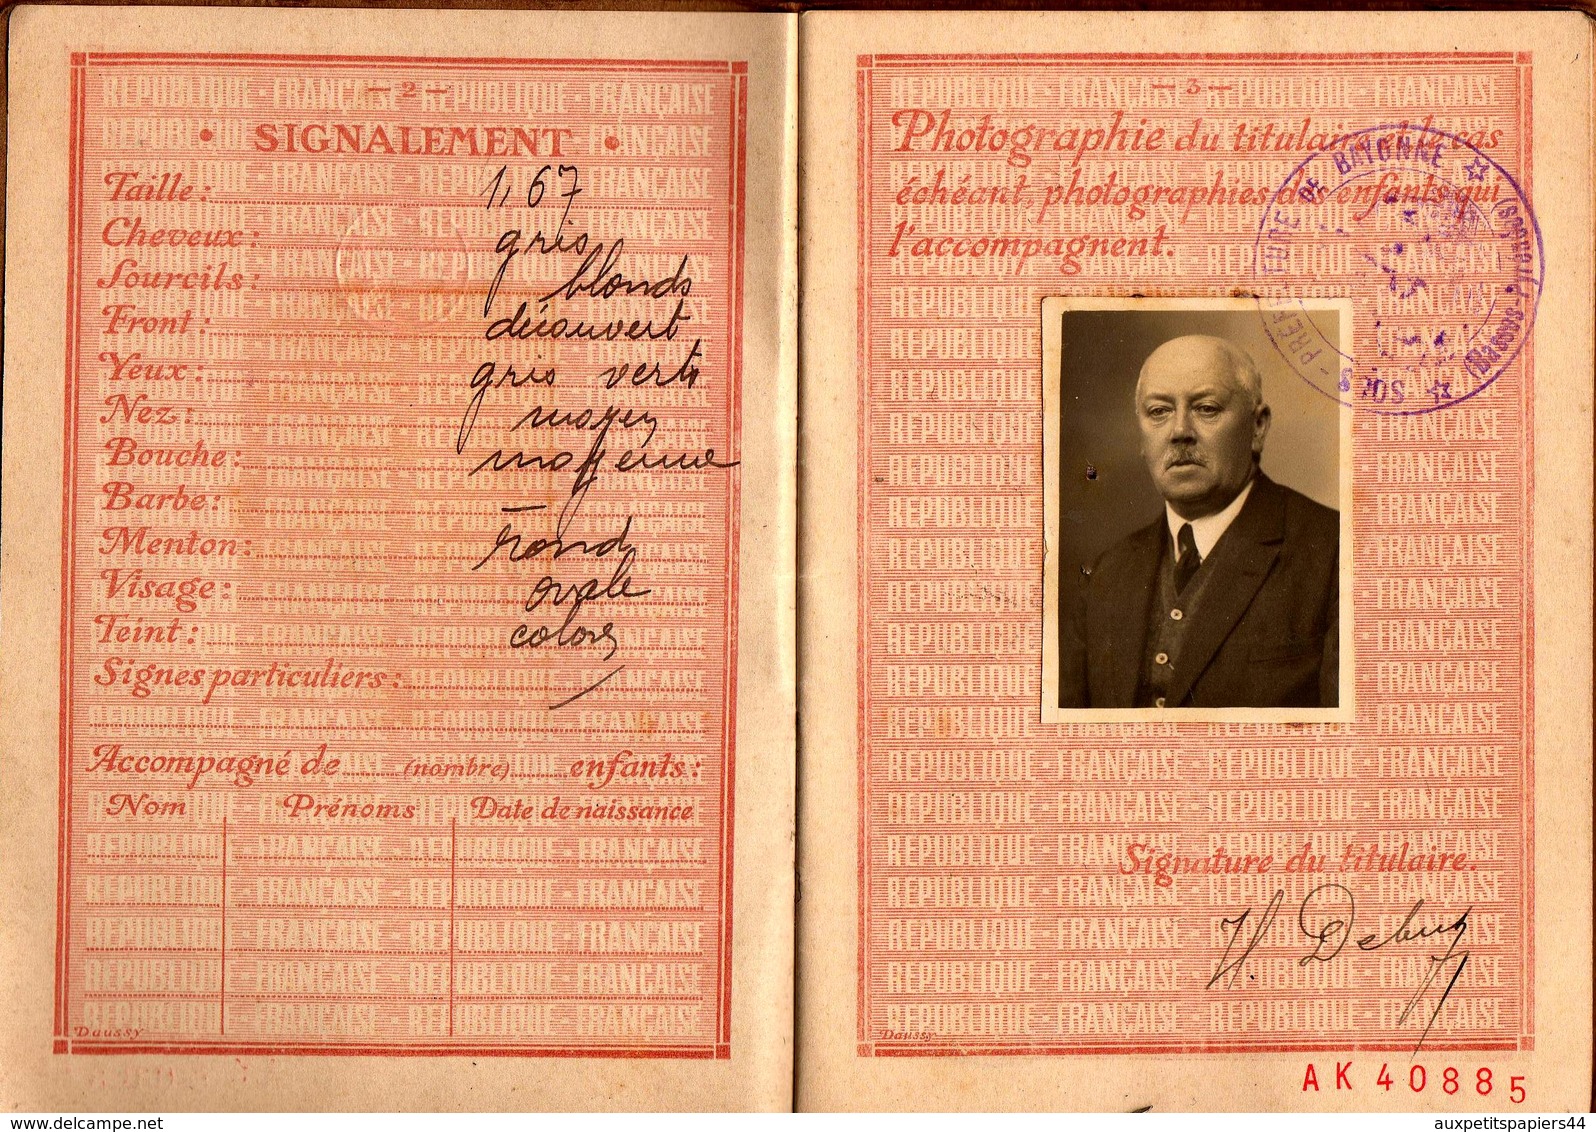 — 2 —
• SIGNALEMENT •
Taille : 1,67
Cheveux : gris
Sourcils : blonds
Front : découvert
Yeux : gris verts
Nez : moyen
Bouche : moyenne
Barbe : —
Menton : rond
Visage : ovale
Teint : coloré
Signes particuliers :
Accompagné de (nombre) enfants :
Nom Prénoms Date de naissance
Daussy
— 3 —
Photographie du titulaire et le cas
échéant, photographies des enfants qui
l'accompagnent.
SOUS-PRÉFECTURE DE BAYONNE
(Basses-Pyrénées)
Signature du titulaire.
H.
Daussy
AK40885
delcampe.net
auxpetitspapiers44
RÉPUBLIQUE - FRANÇAISE - RÉPUBLIQUE - FRANÇAISE